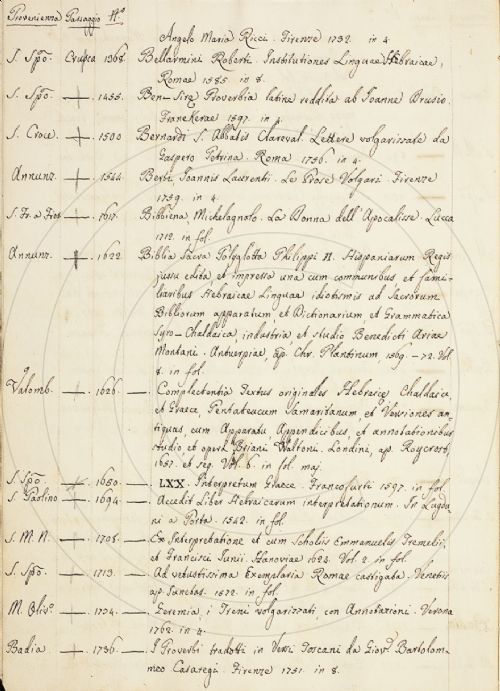 Provenienza Passaggio N.º
Angelo Maria Ricci. Firenze 1732. in 4.
S. Spō. Crusca 1368. Bellarmini Roberti. Institutiones Linguae Hebraicae,
Romae 1585. in 8.
S. Spō. — . 1455. Ben-Sirae Proverbia latine reddita ab Joanne Drusio.
Franekerae 1597. in 4.
S. Croce. — . 1500 Bernardi S. Abbatis Clareval. Lettere volgarizzate da
Gaspero Petrina. Roma. 1756. in 4.
Annunz. — . 1544. Berti Joannis Laurenti. Le Prose Volgari. Firenze
1759. in 4.
S. Fr. a Fies. — . 1617. Bibbiena, Michelagnolo. La Donna dell' Apocalisse. Lucca
1712. in fol.
Annunz. — . 1622. Biblia Sacra Polyglotta Philippi II. Hispaniarum Regis
jussu edita, et impressa una cum communibus et fami-
liaribus Hebraicae Linguae idiotismis ad Sacrorum
Bibliorum apparatum et Dictionarium, et Grammatica
Syro-Chaldaica, industria, et studio Benedicti Ariae
Montani. Antuerpiae, ap. Chr. Plantinum, 1569. - 72. Vol.
8. in fol.
Valomb. — . 1626. — . Complectentia Textus originales Hebraice, Chaldaice,
et Graece, Pentateucum Samaritanum, et Versiones an-
tiquas, cum Apparatu, Appendicibus, et annotationibus
studio et opera Briani Waltoni. Londini, ap. Roycroft,
1657. et seq. Vol. 6. in fol. maj.
S. Spō — . 1680. — . LXX. Interpretum Graece. Francofurti 1597. in fol.
S. Paolino — . 1694. — . Accedit Liber Hebraicarum interpretationum. In Lugdu
ni a Porta. 1542. in fol.
S. M. N. — . 1708. — . Ex Interpretatione et cum Scholiis Emmanuelis Tremelii,
et Francisci Junii. Hanoviae 1624. Vol. 2. in fol.
S. Spō. — . 1713. — . Ad vetustissima Exemplaria Romae castigata. Venetiis
ap. Juntas. 1572. in fol.
M. Oliv.º — . 1734. — . Geremia, i Treni volgarizzati, con Annotazioni. Verona
1762. in 4.
Badia. — . 1736. — . I Proverbi tradotti in Versi Toscani da Giov. Bartolom-
meo Casaregi. Firenze 1751. in 8.